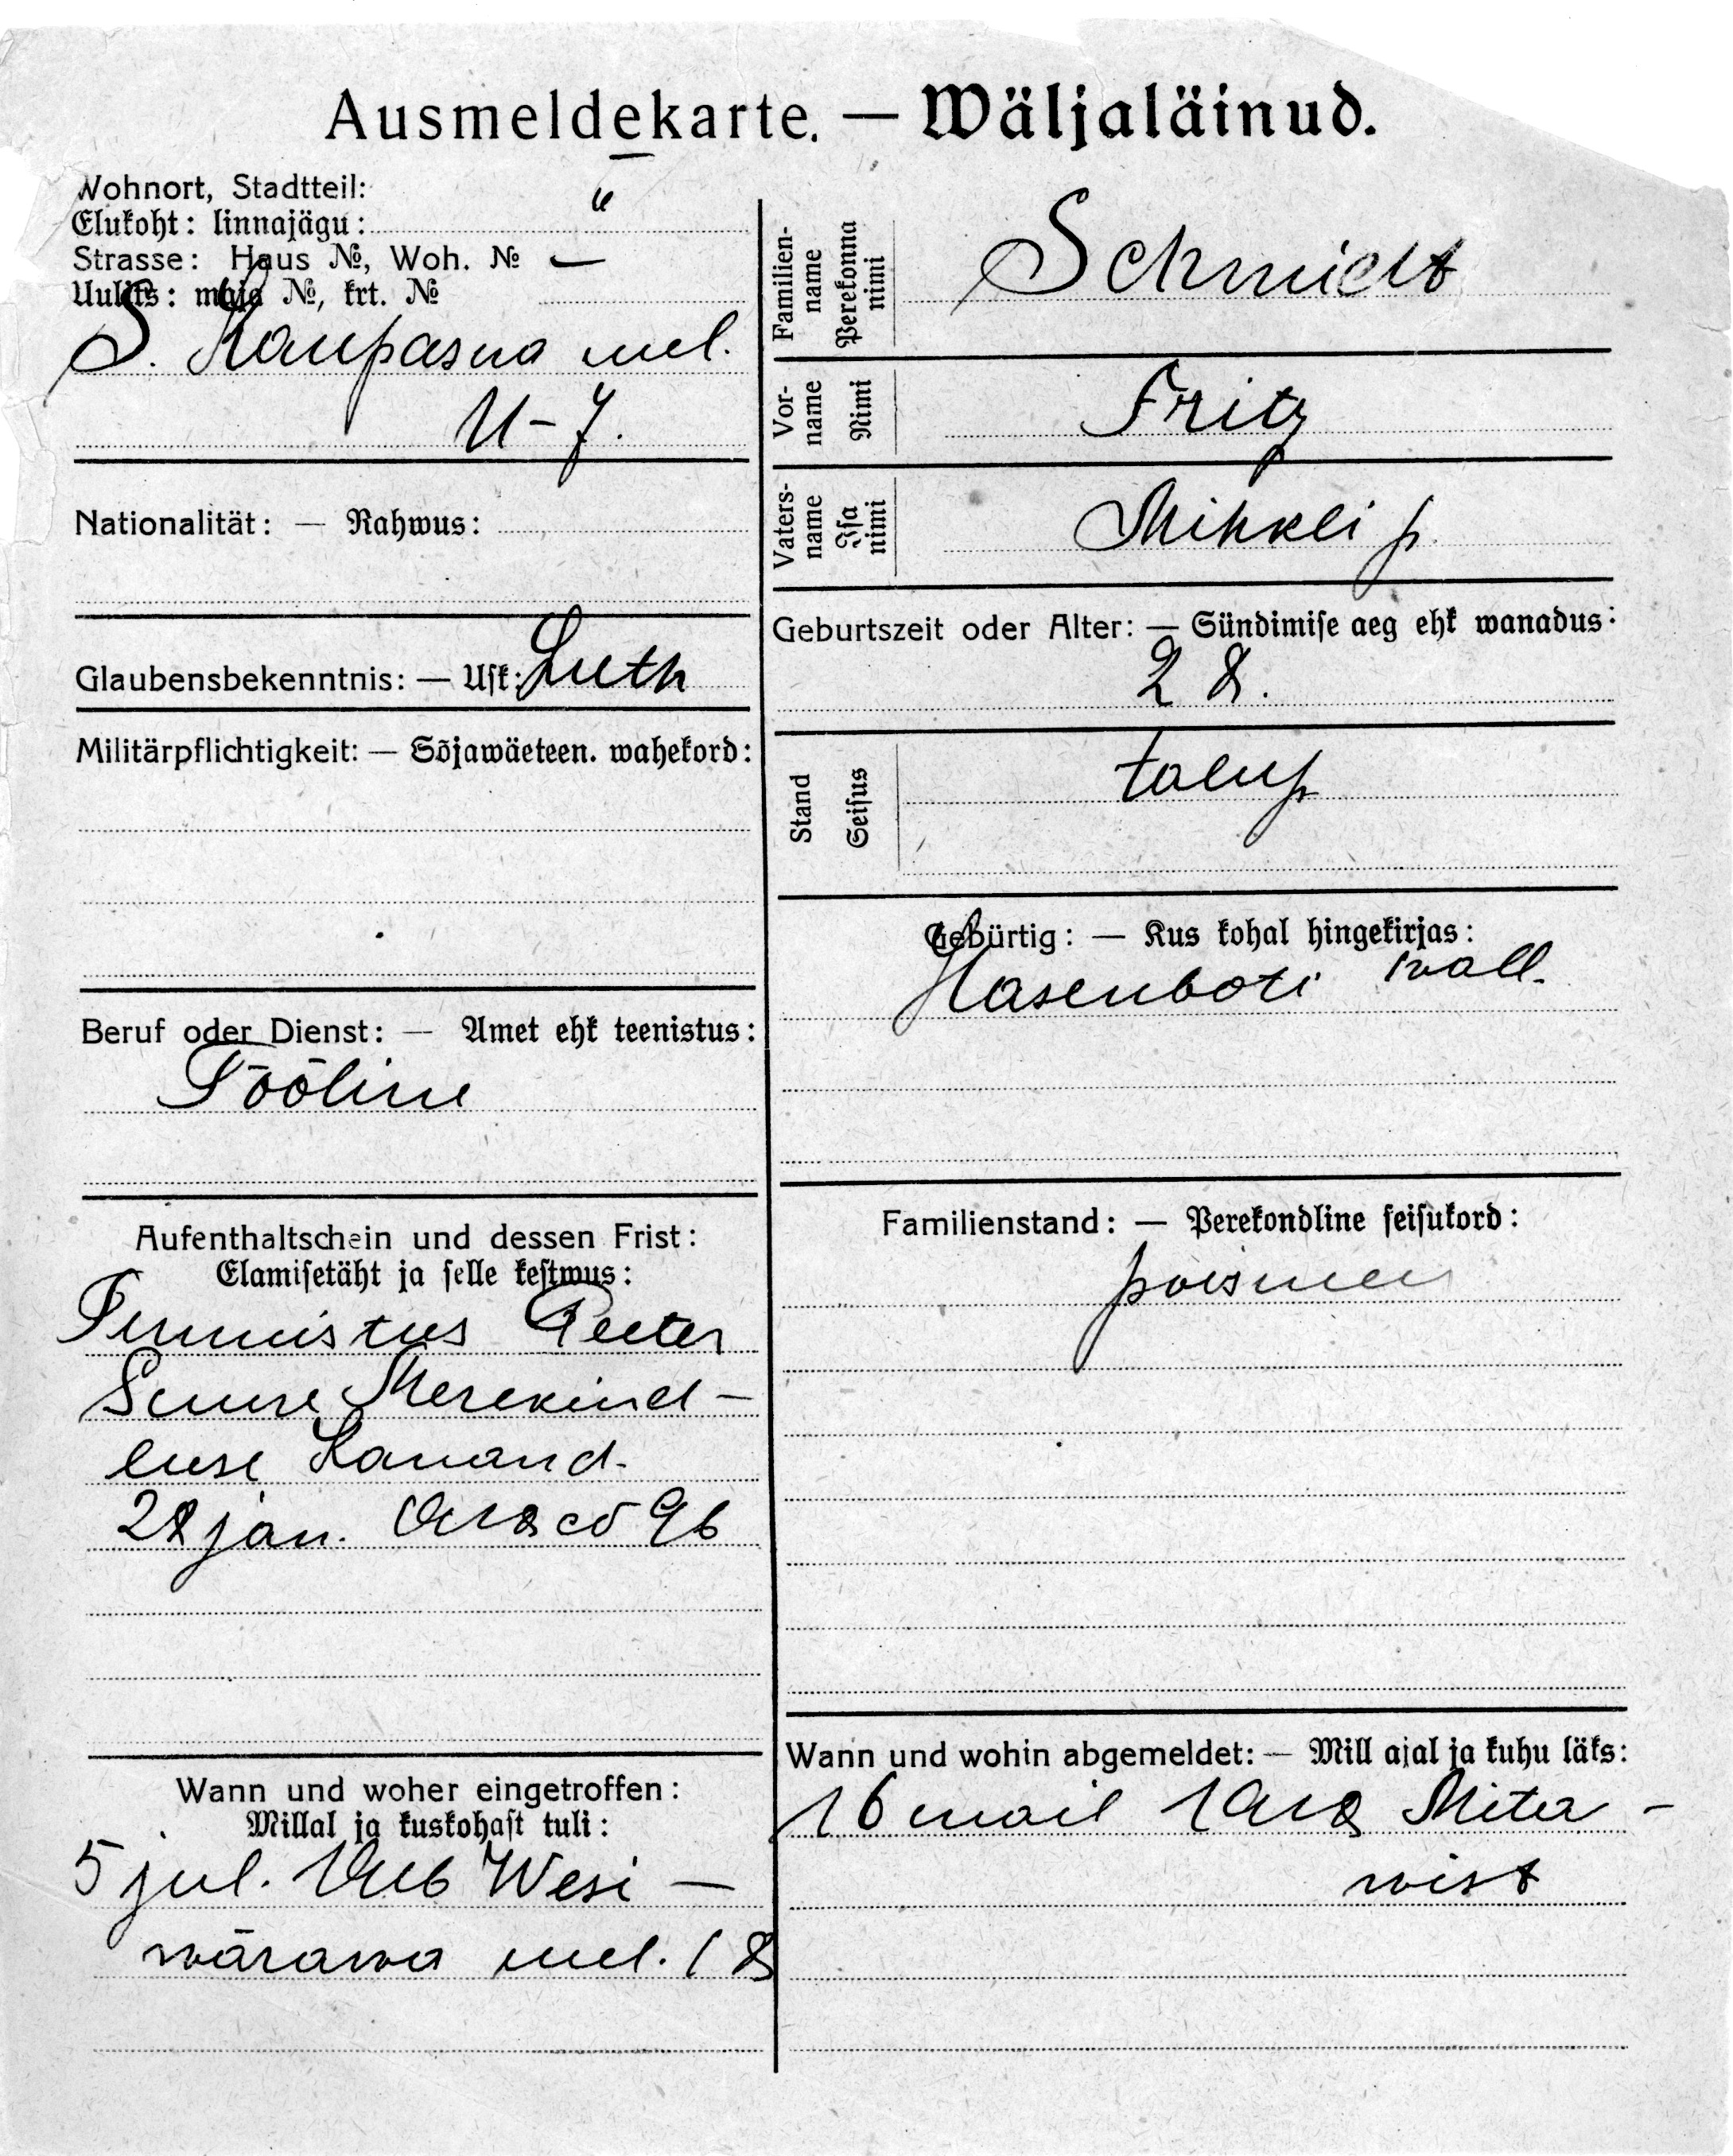 Ausmeldekarte. — Wäljaläinud.
Wohnort, Stadtteil:
Elukoht: linnajägu: "
Strasse: Haus №, Woh. № —
Uulits: maja №, krt. №
S. Kaupasua uul.
11-7.
Nationalität: — Rahwus:
Glaubensbekenntnis: — Usk: Luth
Militärpflichtigkeit: — Sõjawäeteen. wahekord:
Beruf oder Dienst: — Amet ehk teenistus:
Tööline
Aufenthaltschein und dessen Frist:
Elamisetäht ja selle kestwus:
Tunnistus Peeter
Suure Merekind-
luse
28 jan. 96
Wann und woher eingetroffen:
Millal ja kuskohast tuli:
5 jul. 1916 Wesi-
wärawa uul. 18
Familien-
name
Perekonna
nimi
Schmidt
Vor-
name
Nimi
Fritz
Vaters-
name
Isa
nimi
Mihkli p.
Geburtszeit oder Alter: — Sündimise aeg ehk wanadus:
28.
Stand
Seisus
talup
Gebürtig: — Kus kohal hingekirjas:
Hasenboti wall.
Familienstand: — Perekondline seisukord:
poismees
Wann und wohin abgemeldet: — Mill ajal ja kuhu läks:
16 mail 1918 Mita-
wist